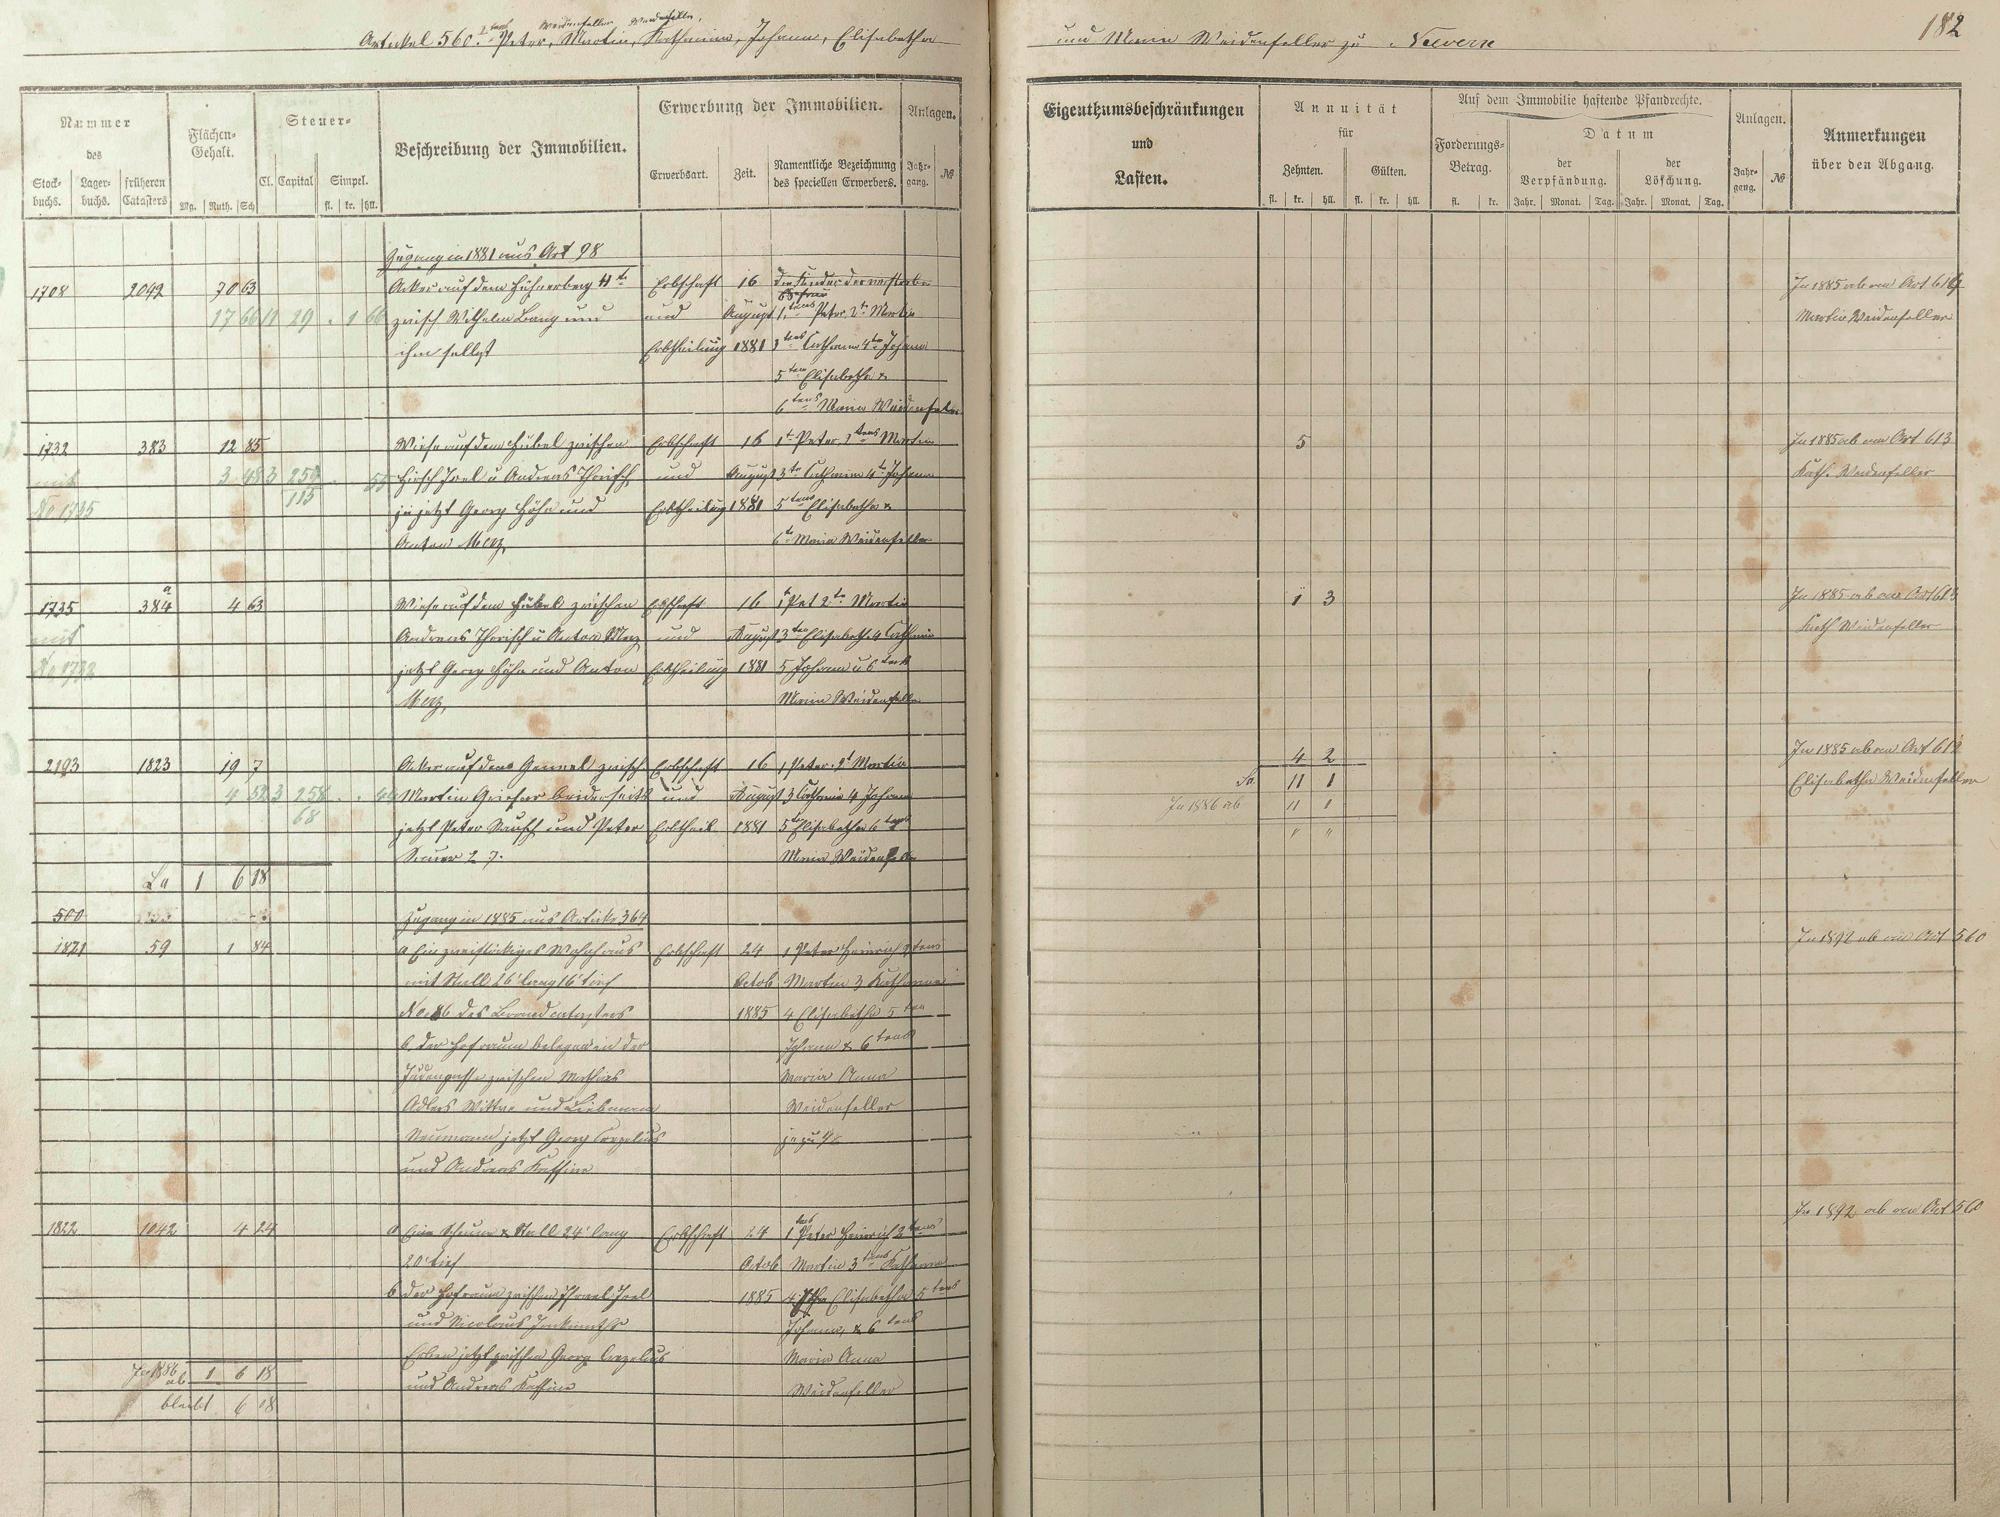 182
Weidenfeller Weidenfeller,
Artikel 560. 1tens Peter, Martin, Katharina, Johann, Elisabetha
und Maria Weidenfeller zu
Nummer
des
Stock-
buchs.
Lager-
buchs.
früheren
Catasters
Flächen-
Gehalt.
Mg. Ruth. Sch
Steuer-
Cl. Capital Simpel.
fl. kr. hll.
Beschreibung der Immobilien.
Erwerbung der Immobilien.
Erwerbsart. Zeit.
Namentliche Bezeichnung
des speciellen Erwerbers.
Anlagen.
Jahr-
gang.
№
Eigenthumsbeschränkungen
und
Lasten.
Annuität
für
Zehnten. Gülten.
fl. kr. hll. fl. kr. hll.
Auf dem Immobilie haftende Pfandrechte.
Forderungs-
Betrag.
fl. kr.
Datum
der
Verpfändung.
der
Löschung.
Jahr. Monat. Tag. Jahr. Monat. Tag.
Anlagen.
Jahr-
gang.
№
Anmerkungen
über den Abgang.
Zugang in 1881 aus Art 98
1708 2092 70 63 Acker auf dem Hühnerberg Erbschaft 16 die Kinder der verstorbe
17 66 11 29 1 66 zwisch Wilhelm Lang und und August 1tens Peter 2t Martin
ihm selbst Erbtheilung 1881 3tens Catharina 4t Johann
5ten Elisabetha &
6tens Maria Weidenfeller
In 1885 ab an Art 614
Martin Weidenfeller
1732 383 12 85 Wiese auf dem Hübel zwischen Erbschaft 16 1t Peter, 2tens Martin
mit 3 48 3 259 55 Hirsch Joel u Andreas Thorisch und August 3t Catharina 4t Johann
No 1735 115 jetzt Georg Höhn und Erbtheilung 1881 5tens Elisabetha &
Anton Merz, 6t Maria Weidenfeller
5
In 1885 ab an Art 613
Kath. Weidenfeller
1735 384 a 4 63 Wiese auf dem Hübel zwischen Erbschaft 16 1t Pet 2t Martin
mit Andreas Thorisch u Anton Merz und August 3ten Elisabeth 4 Cathrin
No 1732 jetzt Georg Höhn und Anton Erbtheilung 1881 5 Johann u 6tens
Merz, Maria Weidenfeller
1 3
In 1885 ab an Art 613
Kath Weidenfeller
2193 1823 19 7 Acker auf dem zwisch Erbschaft 16 1 Peter 2t Martin
4 52 3 258 44 Martin beiderseits und August 3 Catharin 4 Johann
68 jetzt Peter und Peter Erbtheil 1881 5ten Elisabetha 6tens
Maria Weidenfeller
4 2
Sa. 11 1
In 1886 ab 11 1
" "
In 1885 ab an Art 612
Elisabetha Weidenfeller
La 1 6 18
500 Zugang in 1885 aus Article 364
1821 59 1 84 a Ein zweistöckiges Wohnhaus Erbschaft 24 1 Peter Heinrich 2tens
mit Stall 26' lang 16' tief Octob Martin 3 Katharina
No. 86 des Brandcatasters 1885 4 Elisabetha 5ten
b, der Hofraum belegen in der Johann & 6tens
Judengasse zwischen Mathias Maria Anna
Adlers Wittwe und Liebmann Weidenfeller
Neumann jetzt Georg Corzelius je zu 1/6
und Andreas
In 1892 ab an Art 560
1822 1042 4 24 a Eine Scheuer & Stall 24' lang Erbschaft 24 1tens Peter Heinrich 2tens
20' tief Octob Martin 3tens Katharina
b der Hofraum zwischen Israel Joel 1885 4 Elisabetha 5tens
und Nicolaus Johann, & 6tens
Erben jetzt zwischen Georg Corzelius Maria Anna
und Andreas Weidenfeller
In 1892 ab an Art 560
In 1886 ab 1 6 18
bleibt 6 08